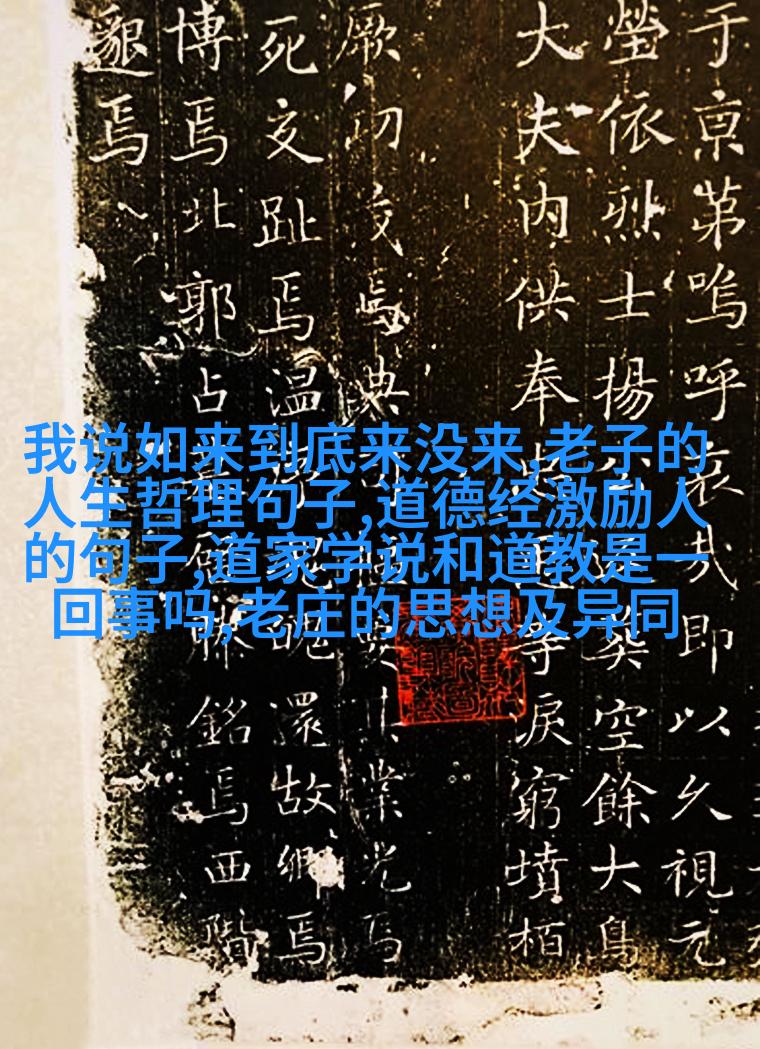 我说如来到底来没来,老子的
人生哲理句子,道德经激励人
的句子,道家学说和道教是一
回事吗,老庄的思想及异同
于京第嗚呼哀哉即以久視元
瑩依烈士揚葬空餘大鳥
大夫内供奉寺淚窮墳栢
厥功茂焉典業光焉
死交趾焉温魂還故鄉焉
博焉北郭占銘焉西階
邈焉